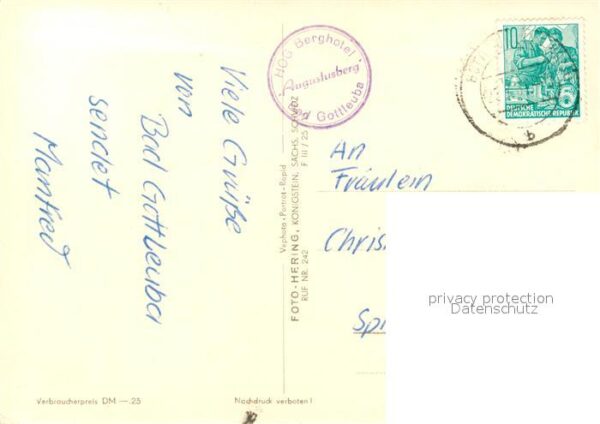 Viele Grüße
von
Bad Gottleuba
sendet
Manfred
HOG Berghotel
Augustusberg
Bad Gottleuba
Vephota · Porträt · Rapid
FOTO-HERING, KÖNIGSTEIN, SÄCHS. SCHWEIZ
RUF NR. 242 F III / 25
10
DEUTSCHE
DEMOKRATISCHE REPUBLIK
b
An
Fräulein
Chris
Sp
privacy protection
Datenschutz
Verbraucherpreis DM —.25
Nachdruck verboten!